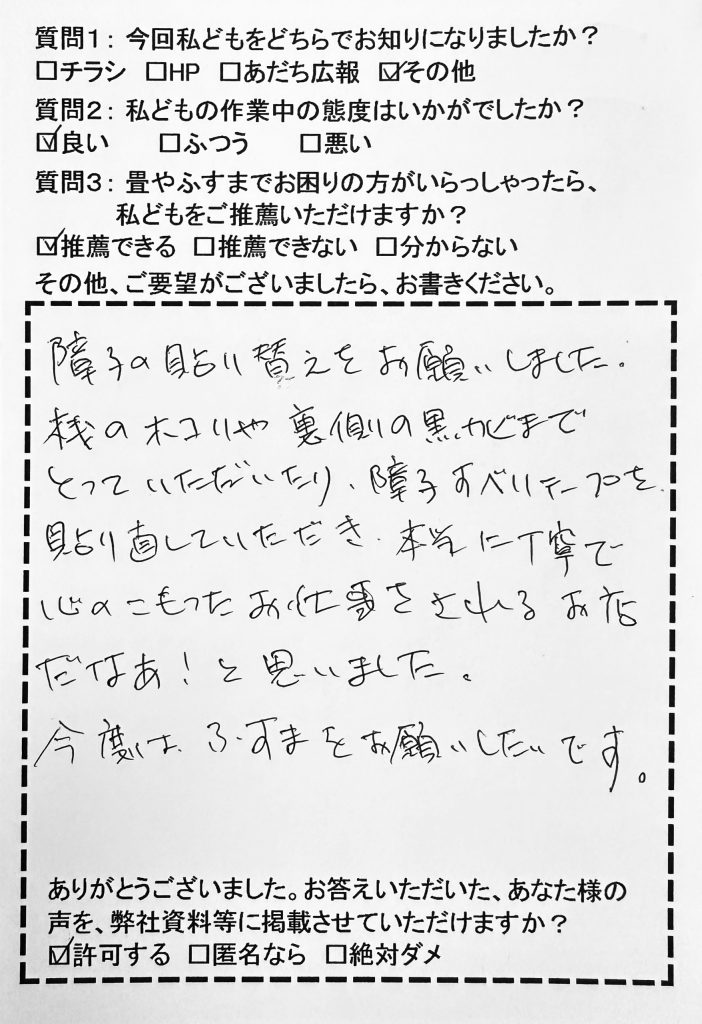 質問1: 今回私どもをどちらでお知りになりましたか?
□チラシ □HP □あだち広報 ☑その他
質問2: 私どもの作業中の態度はいかがでしたか?
☑良い □ふつう □悪い
質問3: 畳やふすまでお困りの方がいらっしゃったら、
私どもをご推薦いただけますか?
☑推薦できる □推薦できない □分からない
その他、ご要望がございましたら、お書きください。
障子の貼り替えをお願いしました。
桟のホコリや裏側の黒カビまで
とっていただいたり、障子すべりテープを
貼り直していただき、本当に丁寧で
心のこもったお仕事をされるお店
だなあ!と思いました。
今度は、ふすまをお願いしたいです。
ありがとうございました。お答えいただいた、あなた様の
声を、弊社資料等に掲載させていただけますか?
☑許可する □匿名なら □絶対ダメ